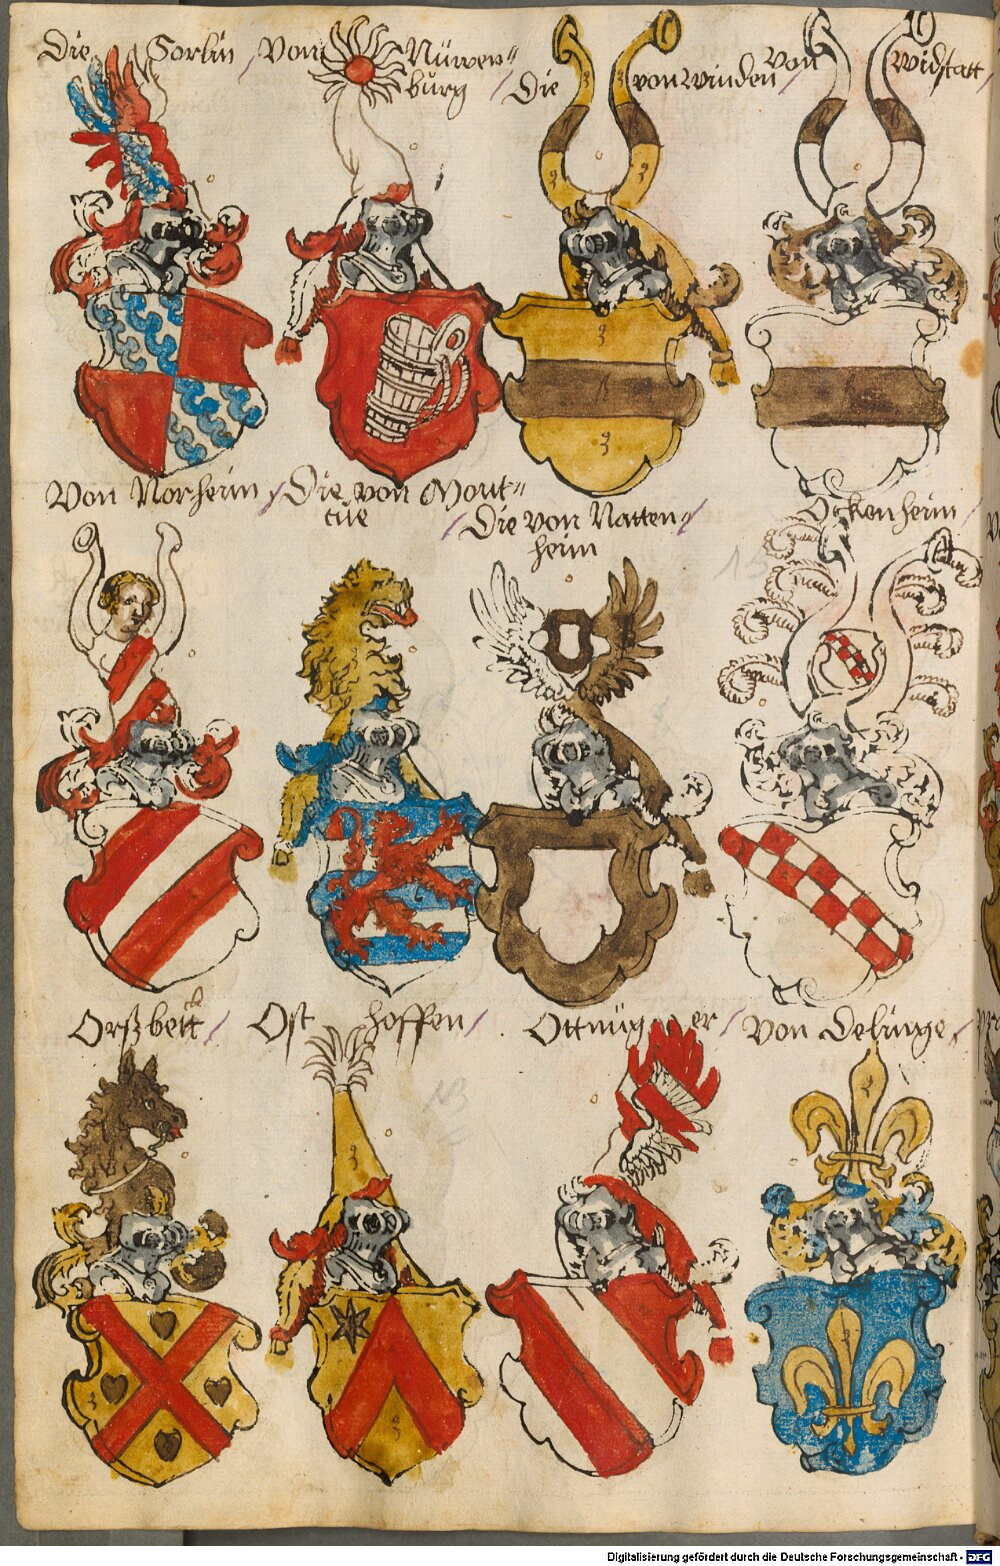 Die Sorlin / Von Nüwen-
burg /
Die von Winden /
Von Widstatt /
Von Norheim /
Die von Mont-
cue
/ Die von Natten-
heim
Ockenheim /
Orßbeck /
Ost hoffen /
Ottnüg er /
Von Oelinge /
Digitalisierung gefördert durch die Deutsche Forschungsgemeinschaft - DFG